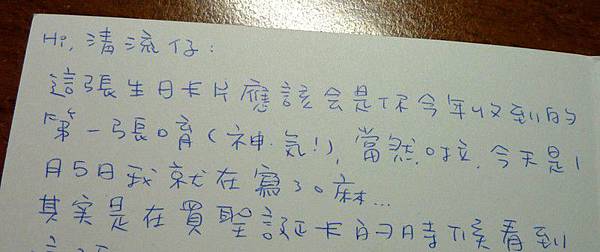 Hi, 清流仔:
這張生日卡片應該会是你今年收到的
第一張唷(神氣!), 當然啦, 今天是1
月5日我就在寫了嘛...
其实是在買聖誕卡的時候看到